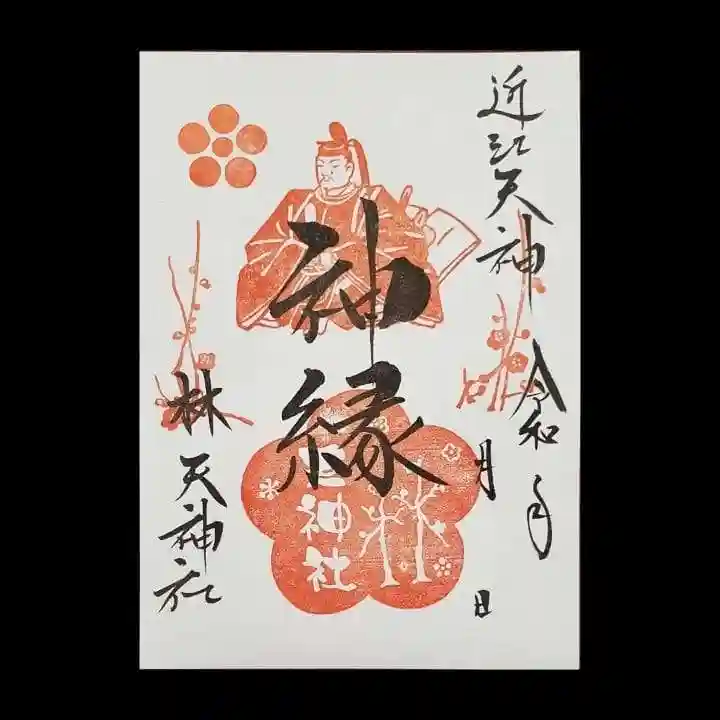 近江天神
令和 年
月 日
神縁
林天神社
林
天神社